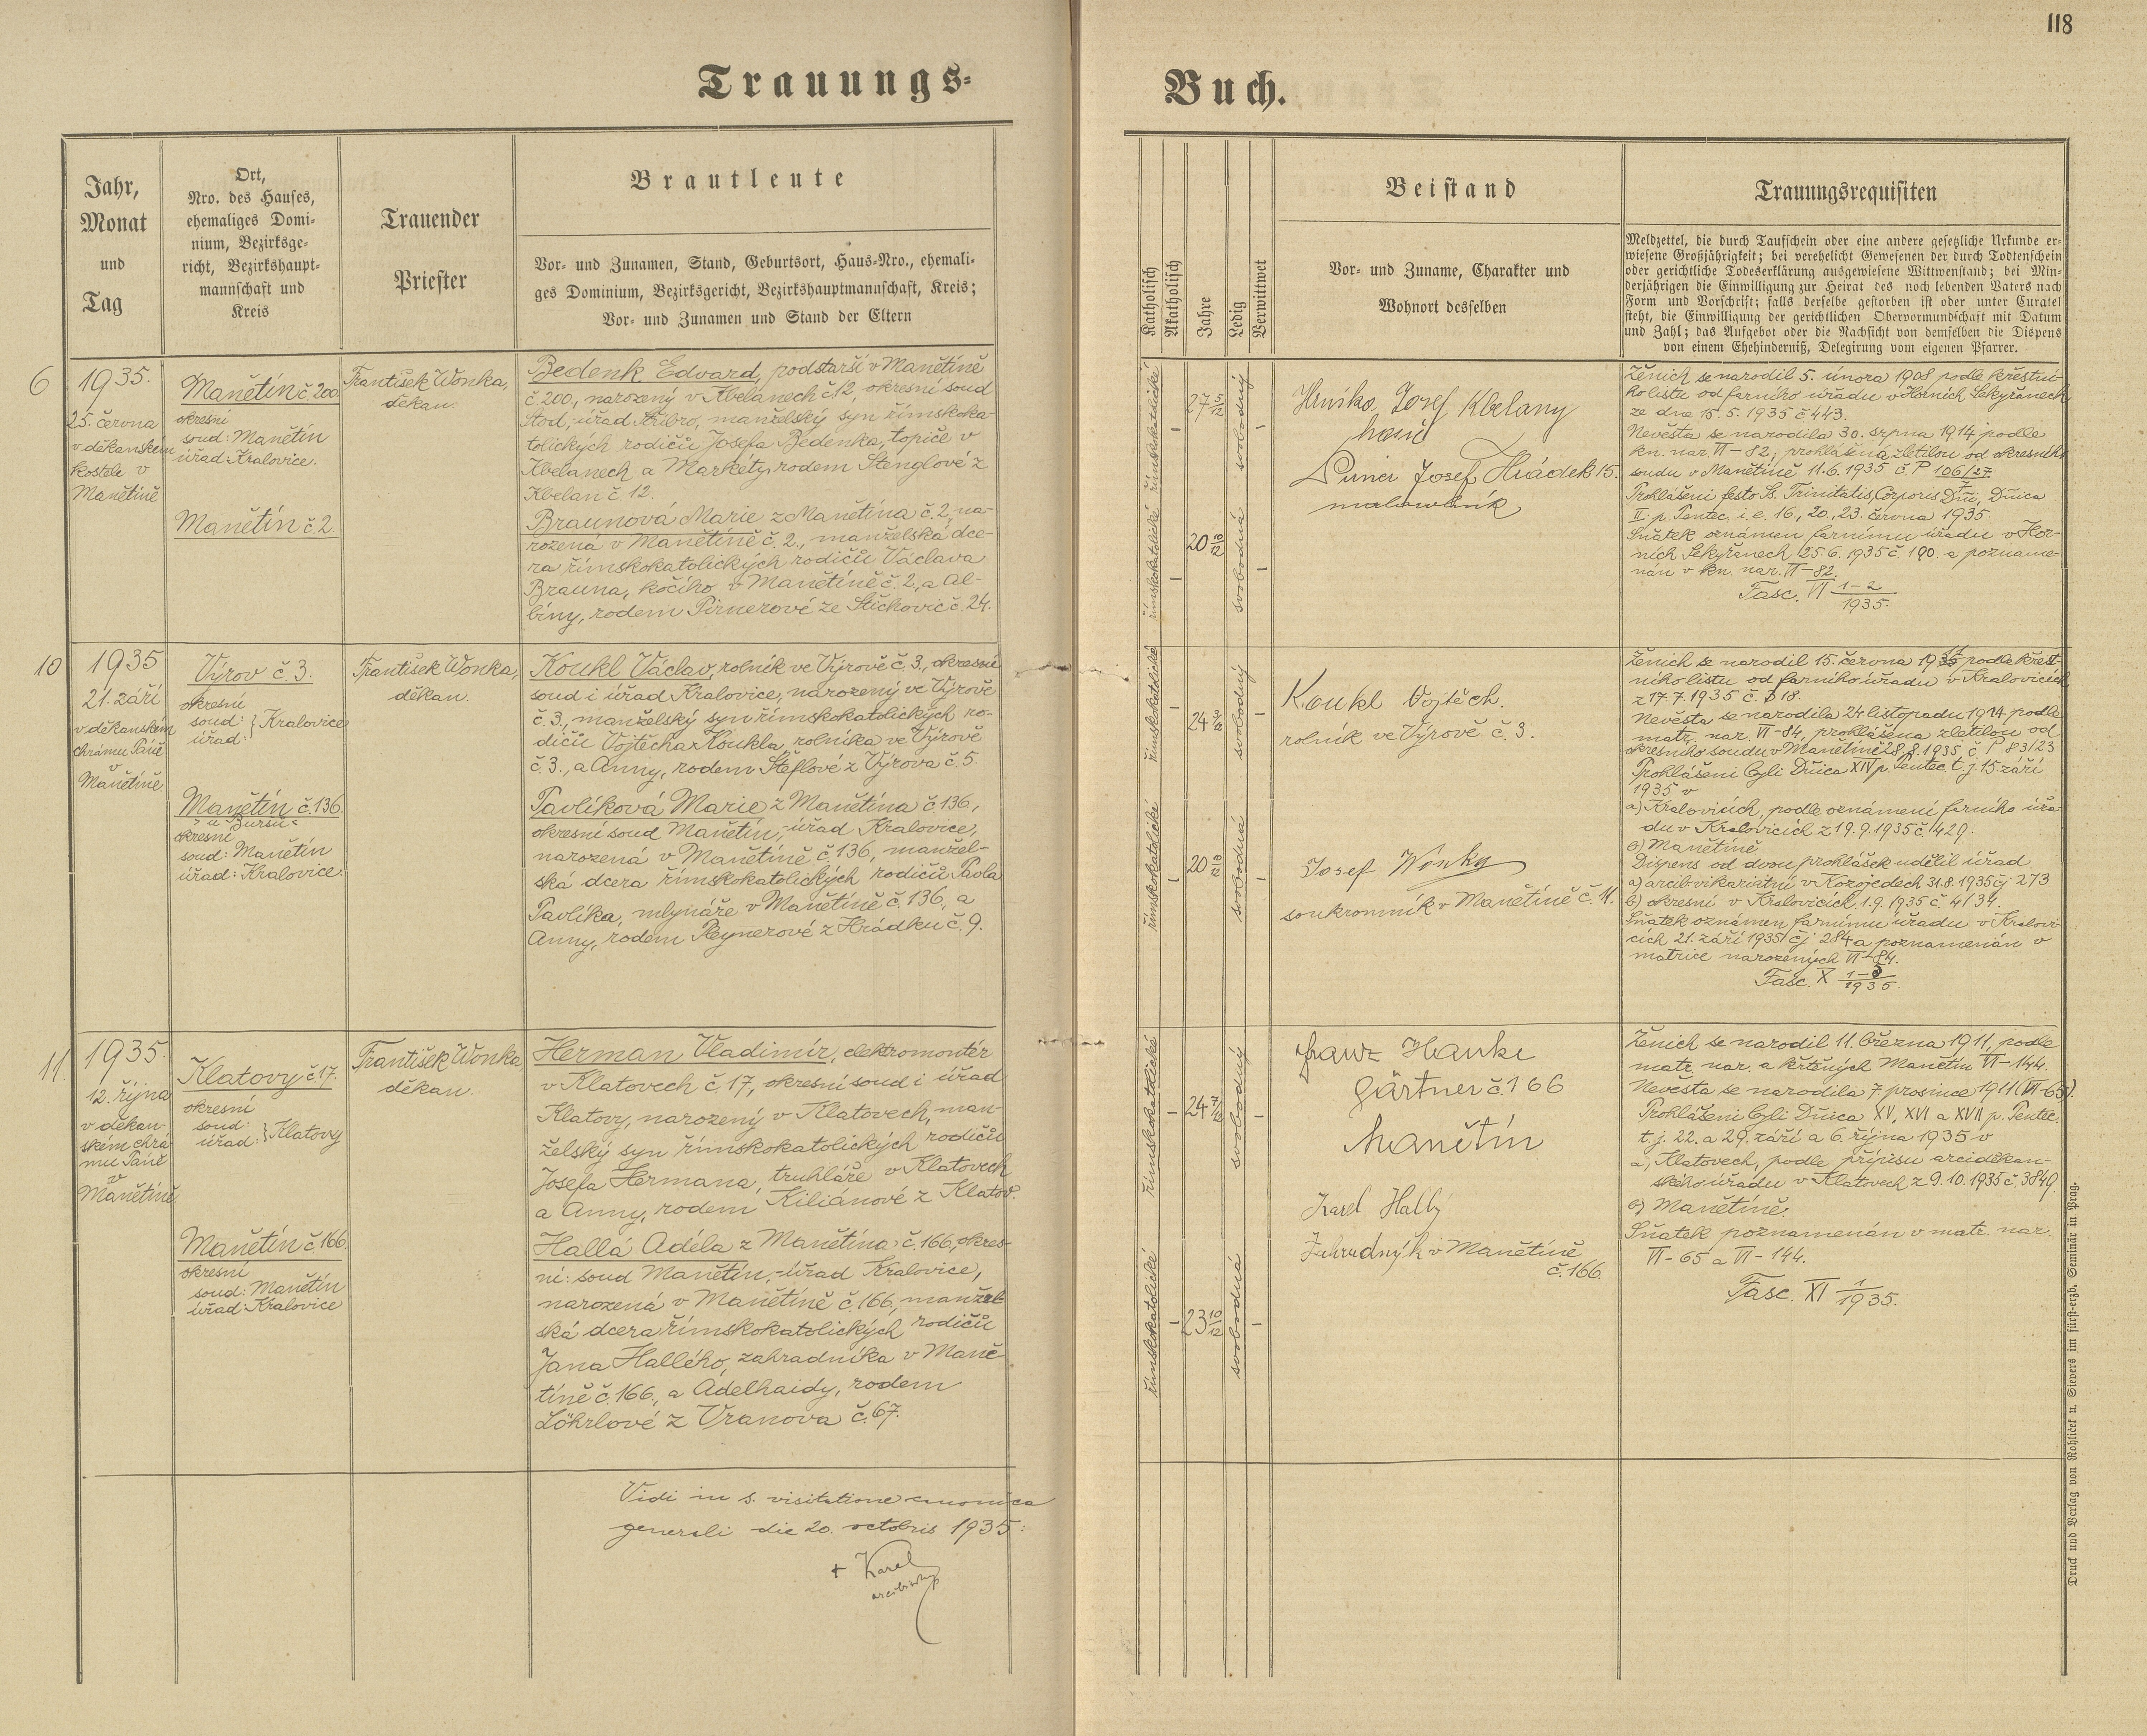 118
Trauungs-
Buch.
Jahr,
Monat
und
Tag
Ort,
Nro. des Hauses,
ehemaliges Domi-
nium, Bezirksge-
richt, Bezirkshaupt-
mannschaft und
Kreis
Trauender
Priester
Brautleute
Vor- und Zunamen, Stand, Geburtsort, Haus-Nro., ehemali-
ges Dominium, Bezirksgericht, Bezirkshauptmannschaft, Kreis;
Vor- und Zunamen und Stand der Eltern
Katholisch
Akatholisch
Jahre
Ledig
Verwittwet
Beistand
Vor- und Zuname, Charakter und
Wohnort desselben
Trauungsrequisiten
Meldzettel, die durch Taufschein oder eine andere gesetzliche Urkunde er-
wiesene Großjährigkeit; bei verehelicht Gewesenen der durch Todtenschein
oder gerichtliche Todeserklärung ausgewiesene Wittwenstand; bei Min-
derjährigen die Einwilligung zur Heirat des noch lebenden Vaters nach
Form und Vorschrift; falls derselbe gestorben ist oder unter Curatel
steht, die Einwilligung der gerichtlichen Obervormundschaft mit Datum
und Zahl; das Aufgebot oder die Nachsicht von demselben die Dispens
von einem Ehehinderniß, Delegirung vom eigenen Pfarrer.
6
1935.
25. června
v děkanském
kostele v
Manětíně
Manětín č. 200
okresní
soud: Manětín
úřad: Kralovice.
Manětín č. 2.
František Wonka,
děkan.
Bedenk Edvard, podstarší v Manětíně
č. 200., narozený v Kbelanech č. 12, okresní soud
Stod, úřad Stříbro, manželský syn římskoka-
tolických rodičů Josefa Bedenka, topiče v
Kbelanech a Markéty, rodem Stenglové z
Kbelan č. 12.
Braunová Marie z Manětína č. 2, na-
rozená v Manětíně č. 2., manželská dce-
ra římskokatolických rodičů Václava
Brauna, kočího v Manětíně č. 2, a Al-
biny, rodem Pirnerové ze Stichovic č. 24.
římskokatolické
27 5/12
svobodný
římskokatolické
20 10/12
svobodná
Hruška, Josef Kbelany
Josef Hrádek 15.
Ženich se narodil 5. února 1908 podle křestní-
ho listu od farního úřadu v Horních Sekyřanech
ze dne 15. 5. 1935 č 443.
Nevěsta se narodila 30. srpna 1914 podle
kn. nar. VI - 82, prohlášena zletilou od okresního
soudu v Manětíně 11. 6. 1935 č. P 106/27
Prohlášeni festo Ss. Trinitatis, Corporis Dñi, Dñica
II. p. Pentec. i. e. 16., 20., 23. června 1935.
Sňatek oznámen farnímu úřadu v Hor-
ních Sekyřanech 25. 6. 1935 č. 190. a pozname-
nán v kn. nar. VI - 82.
Fasc. VI 1-2/1935.
10
1935
21. září
v děkanském
chrámu Páně
v
Manětíně
Výrov č. 3.
okresní
soud:
úřad: } Kralovice
Manětín č. 136.
okresní
soud: Manětín
úřad: Kralovice.
František Wonka,
děkan.
Koukl Václav, rolník ve Výrově č. 3., okresní
soud i úřad Kralovice, narozený ve Výrově
č. 3., manželský syn římskokatolických ro-
dičů Vojtěcha Koukla, rolníka ve Výrově
č. 3., a Anny, rodem Šteflové z Výrova č. 5.
Pavlíková Marie z Manětína č. 136,
okresní soud Manětín, úřad Kralovice,
narozená v Manětíně č. 136, manžel-
ská dcera římskokatolických rodičů Pavla
Pavlíka, mlynáře v Manětíně č. 136, a
Anny, rodem Pleynerové z Hrádku č. 9.
římskokatolické
24 3/12
svobodný
římskokatolické
20 10/12
svobodná
Koukl Vojtěch.
rolník ve Výrově č. 3.
Josef Wonka
soukromník v Manětíně č. 11.
Ženich se narodil 15. června podle křest-
ního listu od farního úřadu v Kralovicích
z 17. 7. 1935 č. 518.
Nevěsta se narodila 24 listopadu 1914 podle
matr. nar. VI - 84, prohlášena zletilou od
okresního soudu v Manětíně 28. 8. 1935 č. P 83/23
Prohlášeni byli Dñica XIV p. Pentec. t. j. 15. září
1935 v
a) Kralovicích, podle oznámení farního úřa-
du v Kralovicích z 19. 9. 1935 č 1429.
b) Manětíně
Dispens od dvou prohlášek udělil úřad
a) arcib. vikariátní v Kozojedech 31. 8. 1935 čj 273
b) okresní v Kralovicích 1. 9. 1935 č 4134.
Sňatek oznámen farnímu úřadu v Kralovi-
cích 21. září 1935 čj 284 a poznamenán v
matrice narozených VI - 84.
Fasc. X 1-5/1935.
11.
1935.
12. října
v děkan-
ském chrá-
mu Páně
v
Manětíně
Klatovy č 17.
okresní
soud:
úřad: } Klatovy
Manětín č. 166
okresní
soud: Manětín
úřad: Kralovice
František Wonka
děkan.
Herman Vladimír, elektromontér
v Klatovech č. 17, okresní soud i úřad
Klatovy, narozený v Klatovech, man-
želský syn římskokatolických rodičů
Josefa Hermana, truhláře v Klatovech
a Anny, rodem Kiliánové z Klatov.
Hallá Adéla z Manětína č. 166, okres-
ní: soud Manětín, - úřad Kralovice,
narozená v Manětíně č. 166, manžel-
ská dcera římskokatolických rodičů
Jana Hallého, zahradníka v Maně-
tíně č. 166., a Adelhaidy, rodem
Löhrlové z Vranova č. 67.
římskokatolické
24 7/12
svobodný
římskokatolické
23 10/12
svobodná
Franz Hanke
Gärtner č. 166
Manětín
Karel Hallý
Zahradník v Manětíně
č. 166.
Ženich se narodil 11. března 1911, podle
matr. nar. a křtěných Manětín VI - 144.
Nevěsta se narodila 7. prosince 1911 (VI - 65).
Prohlášeni byli Dñica XV, XVI a XVII p. Pentec.
t. j. 22. a 29. září a 6. října 1935 v
a, Klatovech, podle přípisu arciděkan-
ského úřadu v Klatovech z 9. 10. 1935 č. 3849.
b) Manětíně.
Sňatek poznamenán v matr. nar.
VI - 65 a VI - 144.
Fasc. XI 1/1935.
Vidi in s. visitatione canonica
generali die 20. octobris 1935:
+ Karel
Druck und Verlag von Rohliček u. Sievers im fürst-erzb. Seminär in Prag.